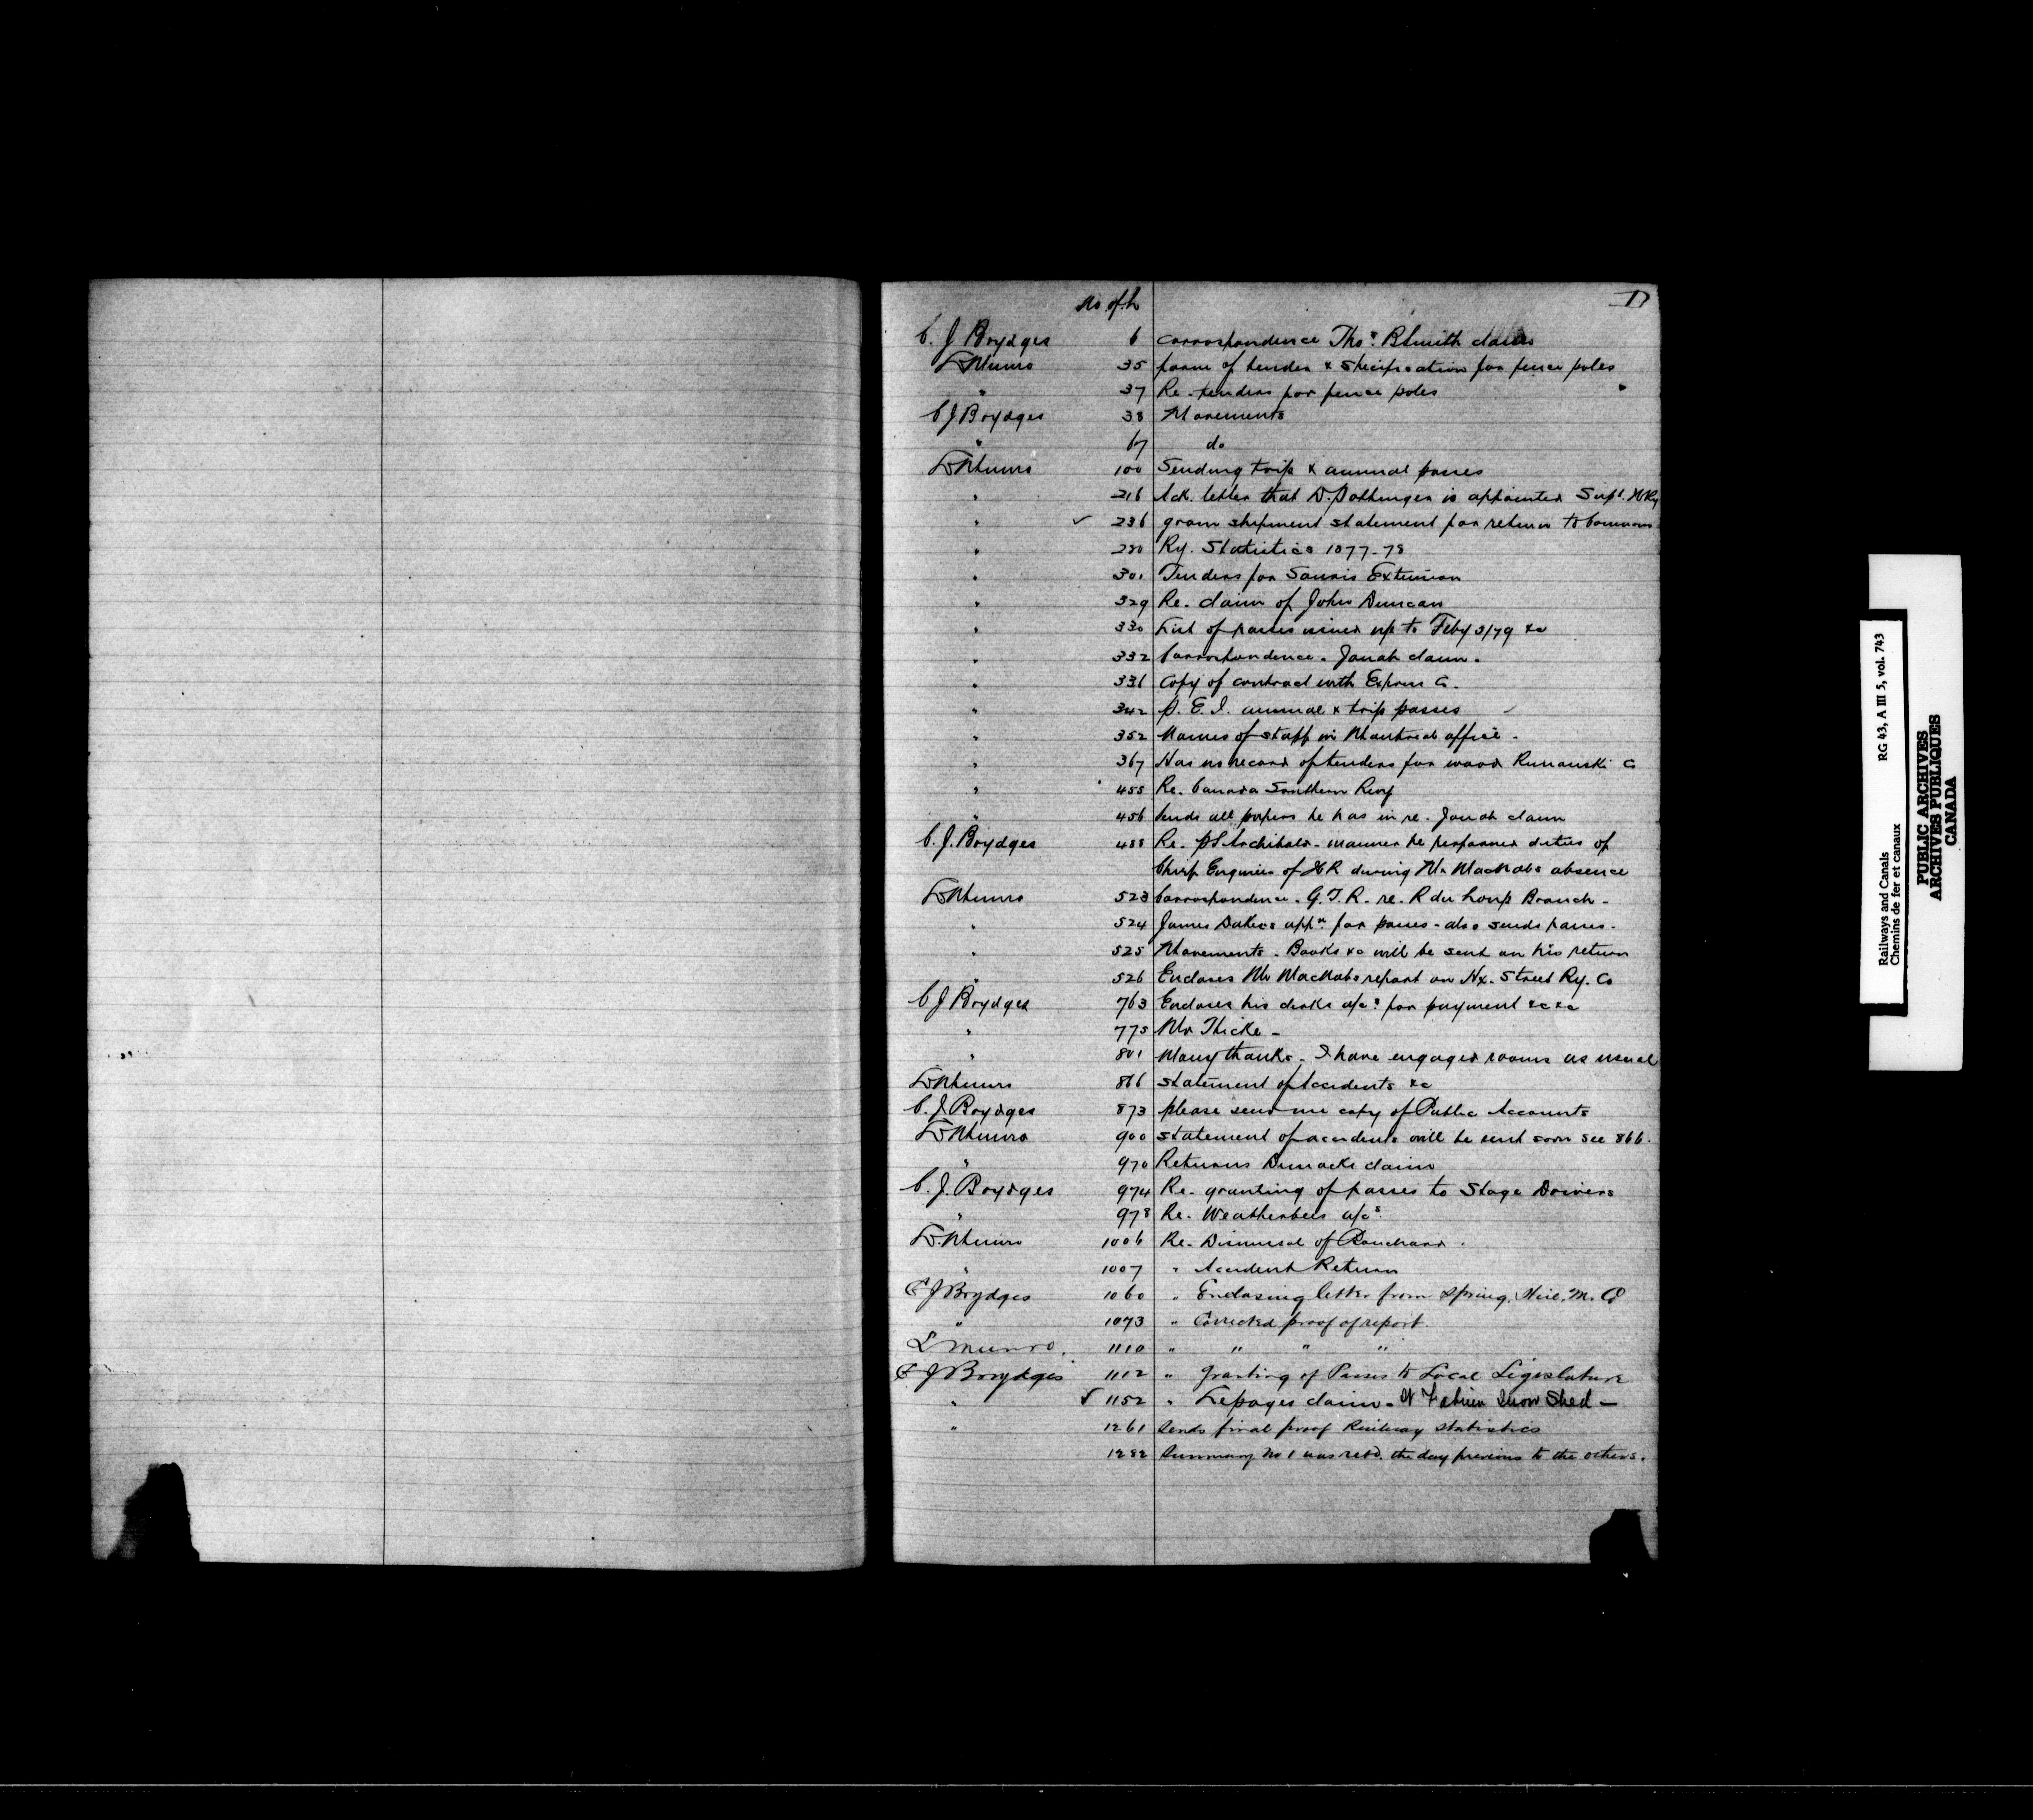 No. of L
C. J. Brydges 6 correspondence Thos. R Smith claim
L Munro 35 form of tender & specification for fence poles
" 37 Re. tenders for fence poles
C J Brydges 38 Movements
" 67 do
L Munro 100 Sending trip & annual passes
" 216 Ack. letter that D. Pottinger is appointed Supt.
" ✓ 236 grain shipment statement for return to Commons
" 280 Ry. Statistics 1877-78
" 301 Tenders for Souris Extension
" 329 Re. claim of John Duncan
" 330 List of passes issued up to Feby 3/79 &c
" 332 Correspondence. Jonah claim.
" 336 Copy of contract with Express Co.
" 342 P. E. I. annual & trip passes
" 352 Names of staff in Montreal office.
" 367 Has no record of tenders for wood Rimouski Co
" 455 Re. Canada Southern Rwy
" 456 Sends all papers he has in re. Jonah claim
C. J. Brydges 488 Re. P S Archibald - manner he performed duties of
Chief Engineer of I R during Mr MacNabs absence
L Munro 523 Correspondence. G. T. R. re. R du Loup Branch.
" 524 James Dakers appn. for passes - also sends passes.
" 525 Movements. Books &c will be sent on his return
" 526 Encloses Mr MacNabs report on Hx. Street Ry. Co
C J Brydges 763 Encloses his clerks a/cs for payment &c &c
" 775 Mr Thicke -
" 801 Many thanks - I have engaged rooms as usual
L Munro 866 Statement of Accidents &c
C. J Brydges 873 please send me copy of Public Accounts
L Munro 900 Statement of accidents will be sent soon see 866.
" 970 Returns Dimocks claim
C. J. Brydges 974 Re. granting of passes to Stage Drivers
" 978 Re. Weatherbees a/cs
L. Munro 1006 Re. Dismissal of
" 1007 " Accident Return
C J Brydges 1060 " Enclosing letter from Spring, M. Co
" 1073 " Corrected proof of report.
L Munro. 1110 " " " "
C J Brydges 1112 " granting of Passes to Local Legislature
" ✓ 1152 " Lepages claim - St Fabien Snow Shed -
" 1261 Sends final proof Railway Statistics
1282 Summary No 1 was retd. the day previous to the others.
Railways and Canals RG 43, A III 5, vol. 743
Chemins de fer et canaux
PUBLIC ARCHIVES
ARCHIVES PUBLIQUES
CANADA